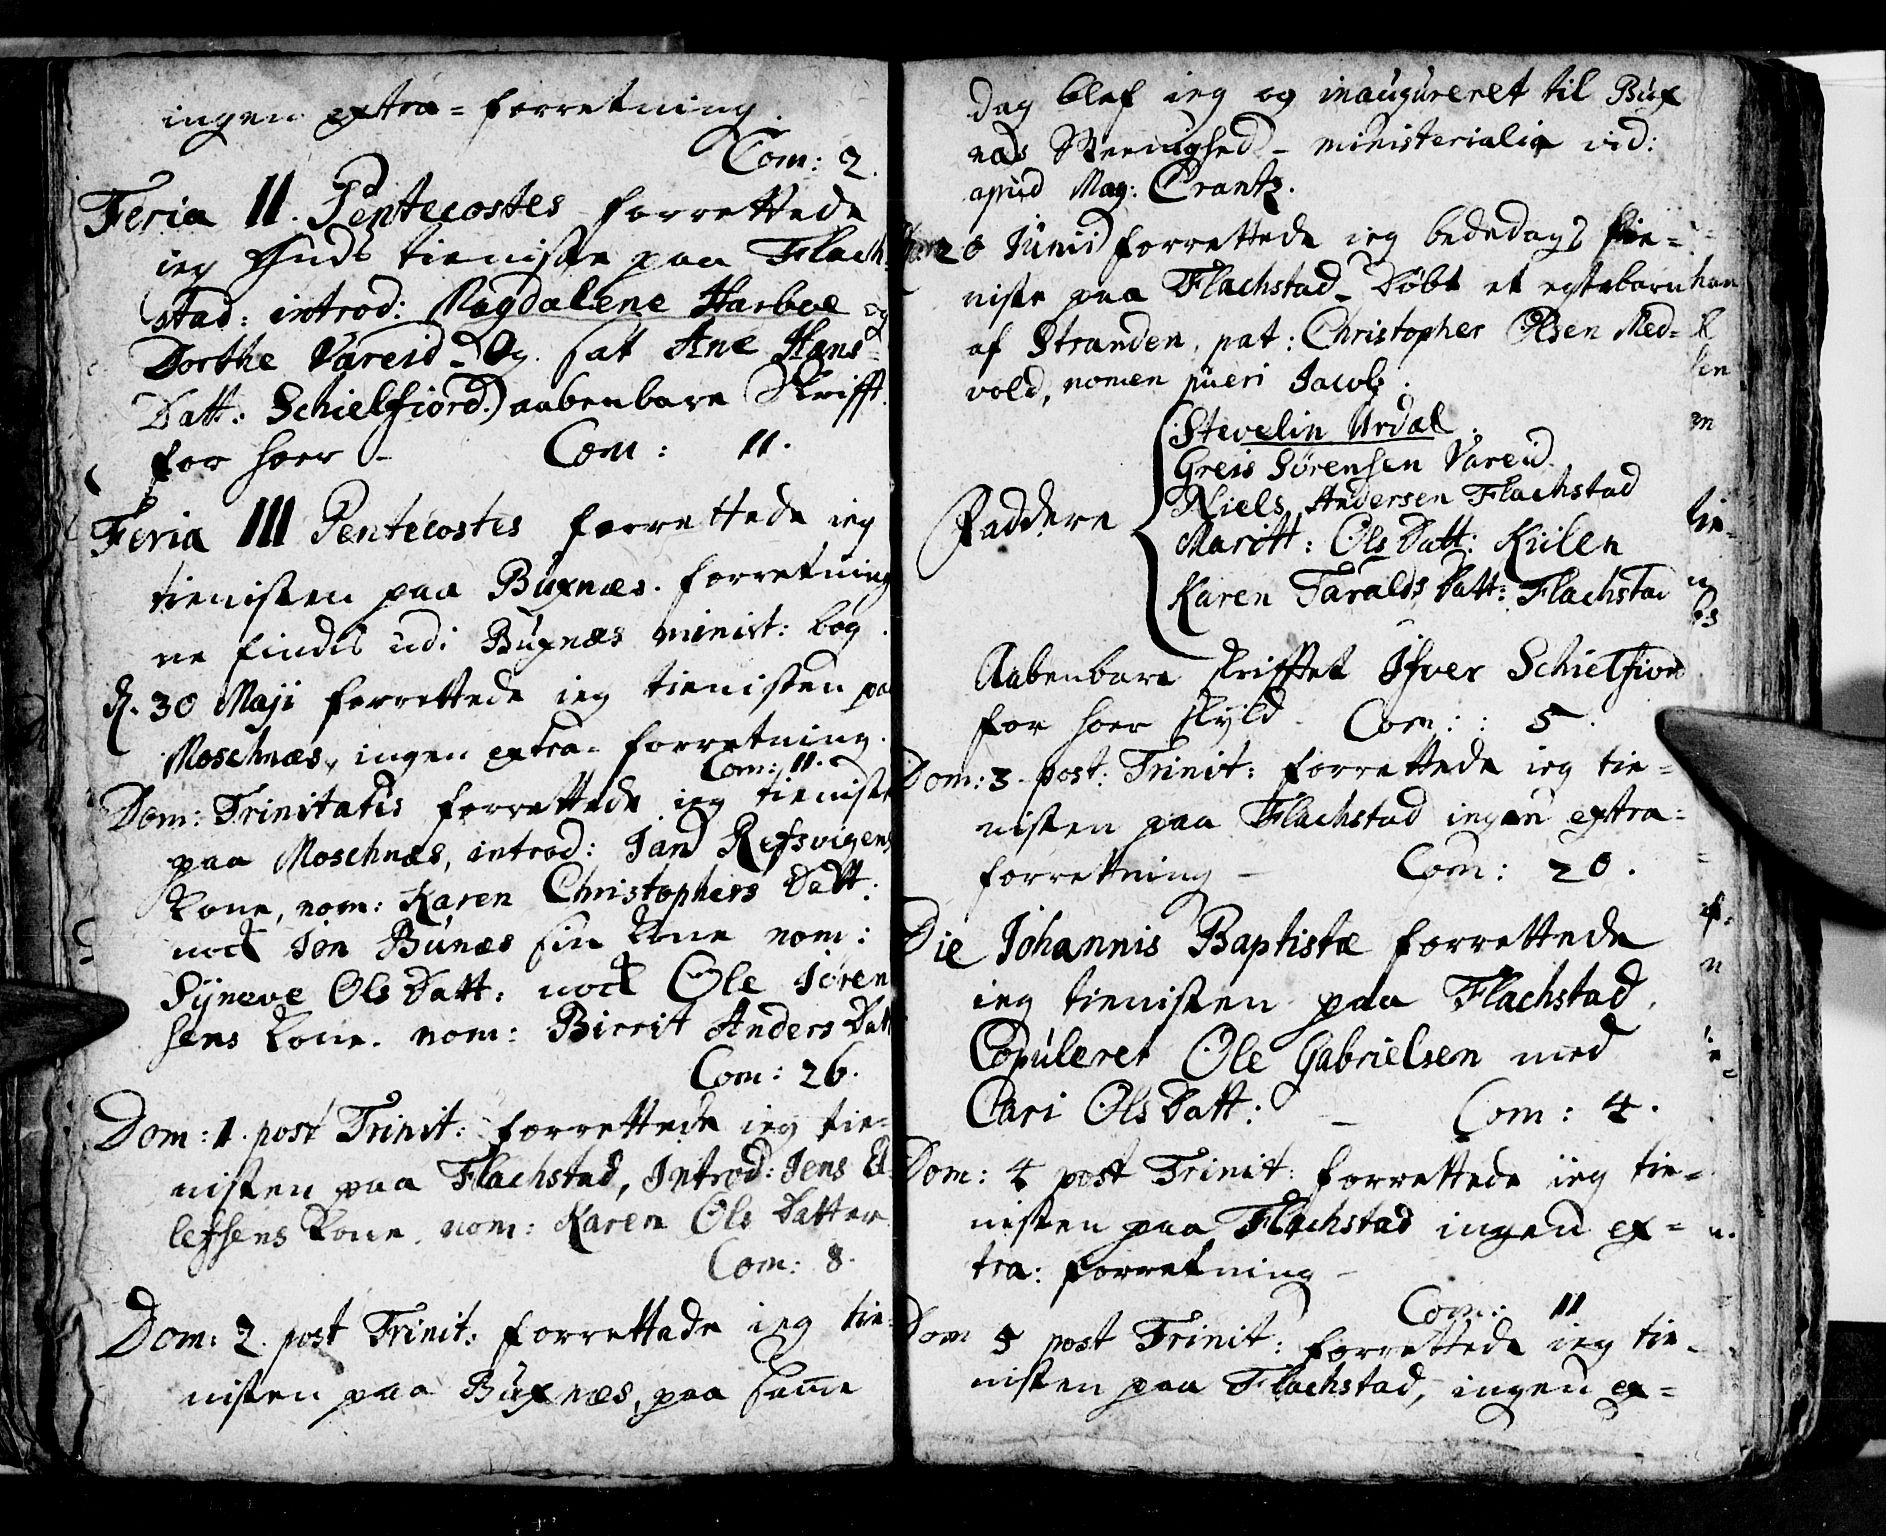 ingen extra-forretning.
Com: 2.
Feria II. Pentecostes forrettede
ieg Guds tieniste paa Flach-
stad: introd: Magdalene Harboe og
Dorthe Vareid. Og sat Ane Hans-
Datt: Schielfiord.) aabenbare Skrifft.
for hoer - Com: 11.
Feria III Pentecostes forrettede ieg
tienisten paa Buxnæs. forretning
ne findes udi Buxnæs minist: bog.
d. 30 Maji forrettede ieg tienisten pa
Moschnæs, ingen extra-forretning.
Com: 11.
Dom: Trinitatis forrettede ieg tieniste
paa Moschnæs, introd: Jand Refsvigens
Kone, nom: Karen Christophers Datt:
nock Jon Bunæs sin Kone nom:
Syneve Ols Datt: nock Ole Joren
sens Kone. nom: Birrit Anders Datt
Com: 26.
Dom: 1. post Trinit: forrettede ieg tie-
nisten paa Flachstad, Introd: Jens El-
lefsens Kone. nom: Karen Ols Datter
Com: 8.
Dom: 2. post Trinit: forrettede ieg tie-
nisten paa Buxnæs, paa samme
dag blef ieg og inaugureret til Bux
næs Meenighed - ministerialia vid:
apud Mag: Crantz.
20 Junii forrettede ieg bededags tie-
niste paa Flachstad. Døbt et egtebarn
af Stranden, pat: Christopher Olsen Med-
vold, nomen pueri Jacob.
Faddere
Stevelin Urdal.
Greis Sørensen Vareid.
Niels Andersen Flachstad
Maritt: Ols Datt: Kiilen
Karen Taralds Datt: Flachstad
Aabenbare skrifftet Ifver Schielfiord
for hoer skyld - Com: 5.
Dom: 3. post: Trinit: forrettede ieg tie-
nisten paa Flachstad ingen extra-
forretning - Com: 20.
Die Johannis Baptistæ forrettede
ieg tienisten paa Flachstad.
Copuleret Ole Gabrielsen med
Cari Ols Datt: - Com: 4.
Dom: 4 post Trinit: forrettede iieg tie-
nisten paa Flachstad ingen ex-
tra: forretning -
Com: 11
Dom 5 post Trinit: forrettede ieg tie-
nisten paa Flachstad, ingen ex-